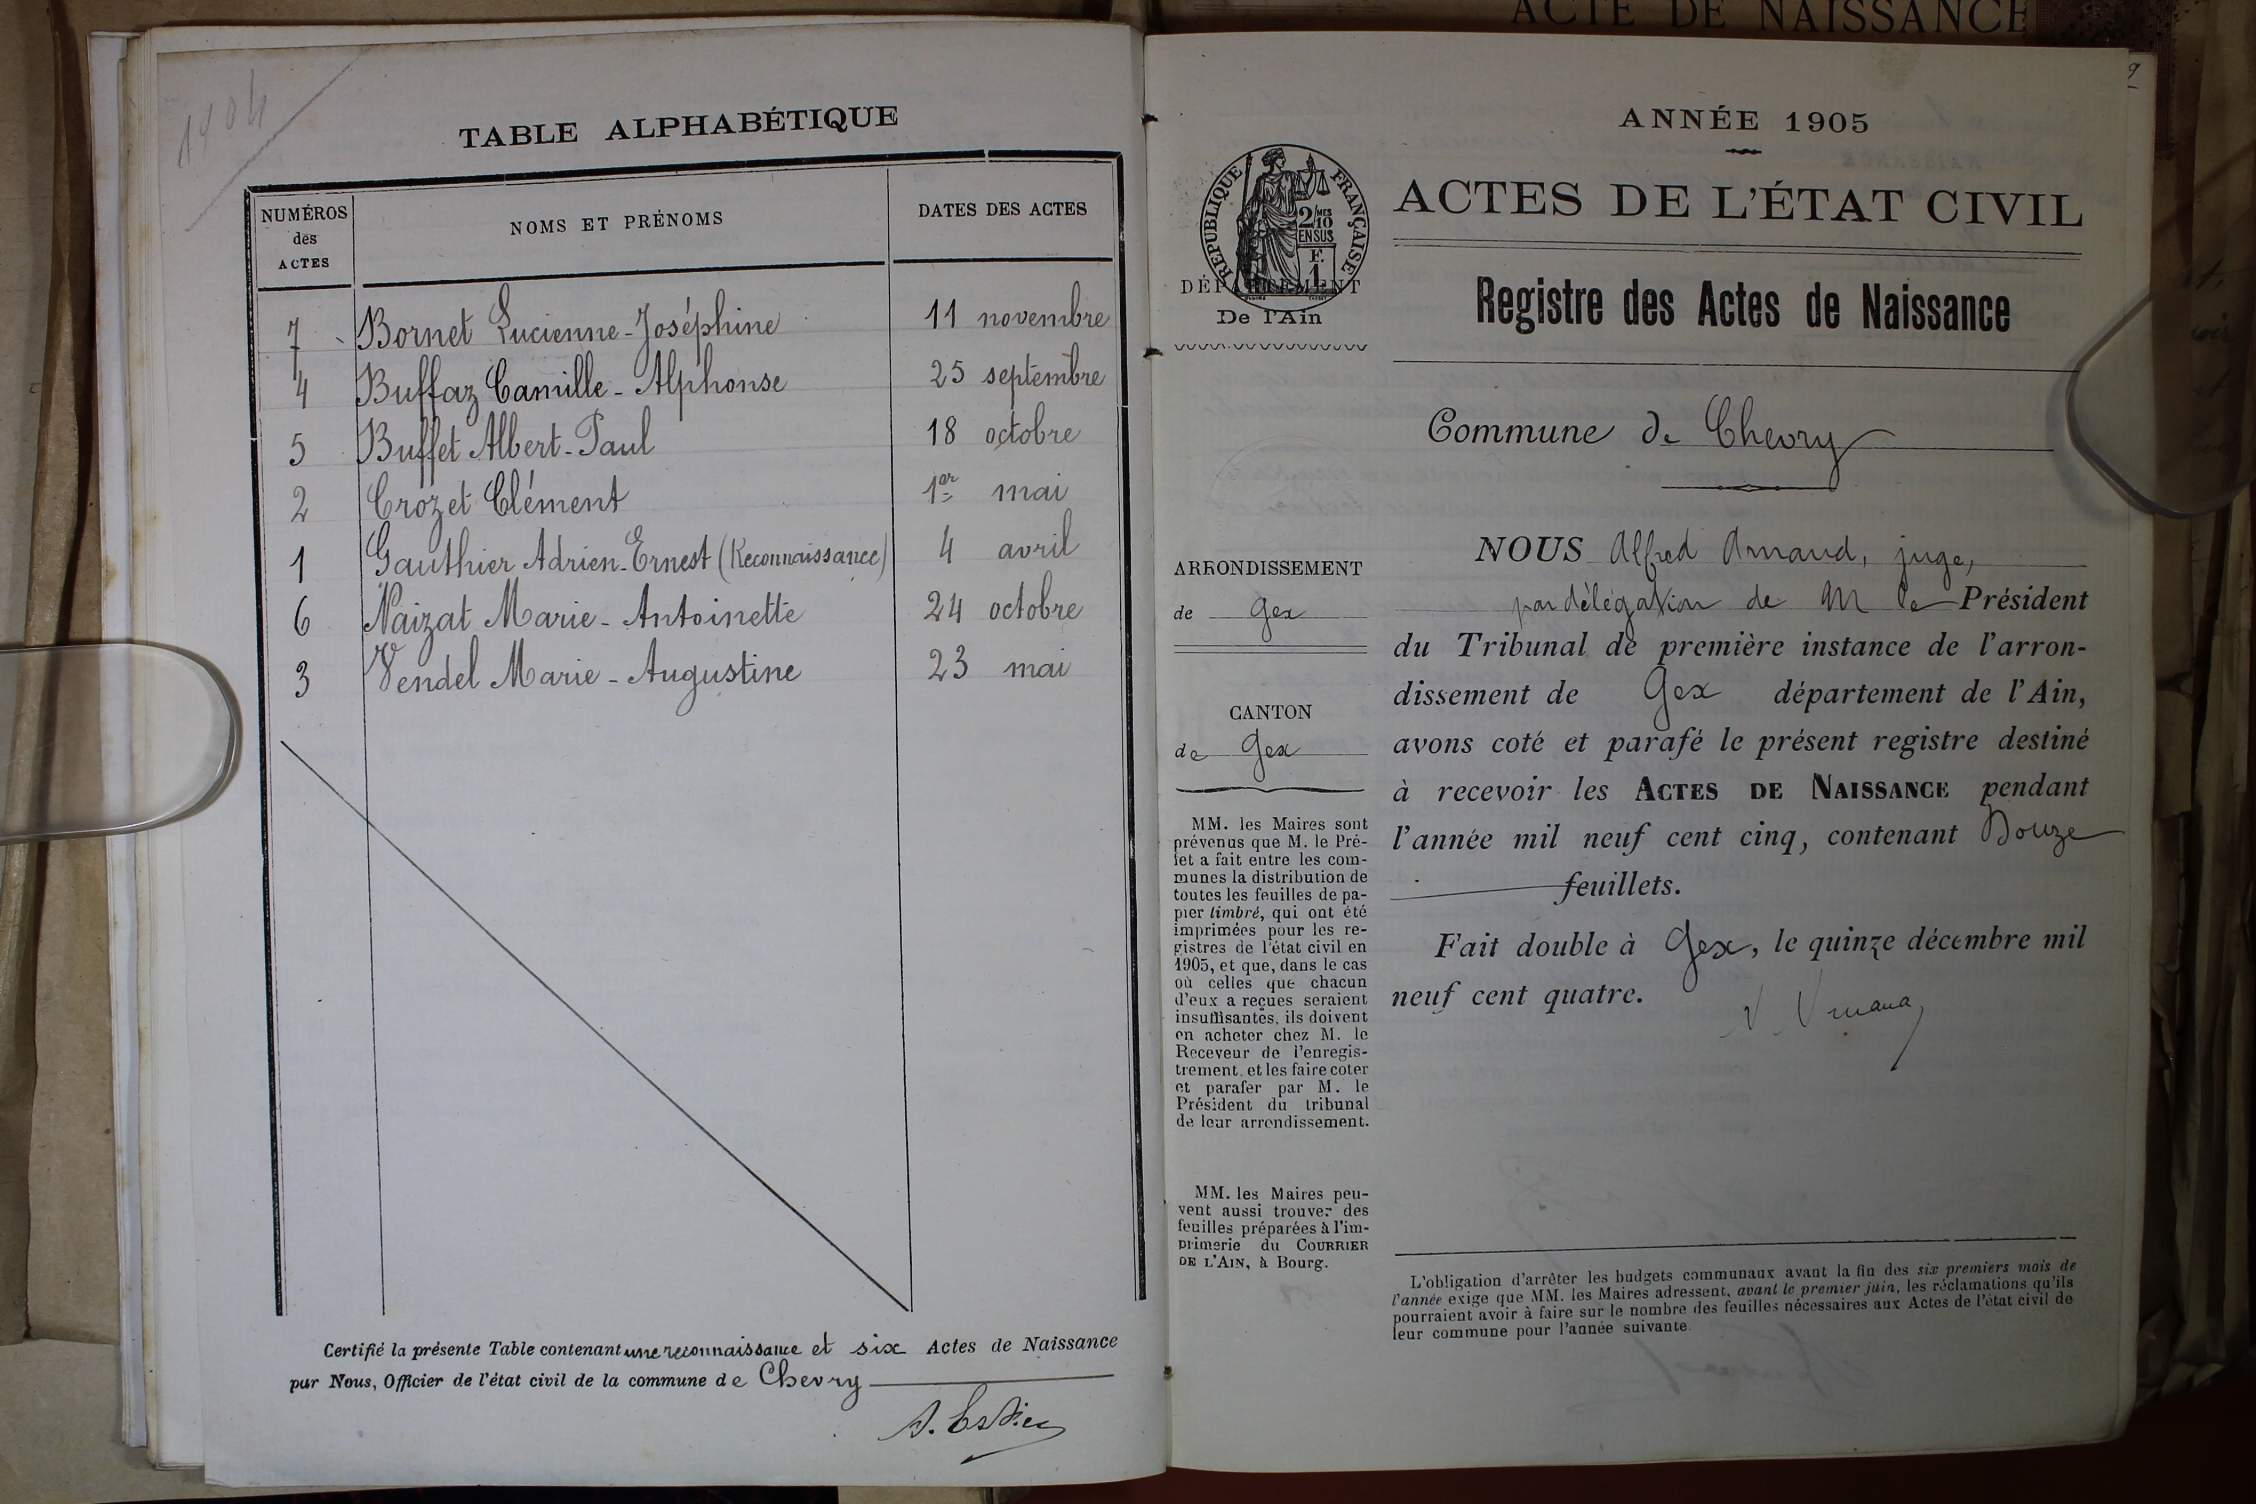 ACTE DE NAISSANCE
1904
TABLE ALPHABÉTIQUE
NUMÉROS des ACTES NOMS ET PRÉNOMS DATES DES ACTES
7 Bornet Lucienne-Joséphine 11 novembre
4 Buffaz Camille-Alphonse 25 septembre
5 Buffet Albert-Paul 18 octobre
2 Crozet Clément 1er mai
1 Gauthier Adrien-Ernest (Reconnaissance) 4 avril
6 Naizat Marie-Antoinette 24 octobre
3 Vendel Marie-Augustine 23 mai
Certifié la présente Table contenant une reconnaissance et six Actes de Naissance
par Nous, Officier de l'état civil de la commune de Chevry
RÉPUBLIQUE FRANÇAISE
2/MES
10
EN SUS
F.
1
DÉPARTEMENT
De l'Ain
ARRONDISSEMENT
de Gex
CANTON
de Gex
MM. les Maires sont
prévenus que M. le Pré-
fet a fait entre les com-
munes la distribution de
toutes les feuilles de pa-
pier timbré, qui ont été
imprimées pour les re-
gistres de l'état civil en
1905, et que, dans le cas
où celles que chacun
d'eux a reçues seraient
insuffisantes, ils doivent
en acheter chez M. le
Receveur de l'enregis-
trement, et les faire coter
et parafer par M. le
Président du tribunal
de leur arrondissement.
MM. les Maires peu-
vent aussi trouver des
feuilles préparées à l'im-
primerie du COURRIER
DE L'AIN, à Bourg.
ANNÉE 1905
ACTES DE L'ÉTAT CIVIL
Registre des Actes de Naissance
Commune de Chevry
NOUS Alfred Arnaud, juge,
par délégation de M le Président
du Tribunal de première instance de l'arron-
dissement de Gex département de l'Ain,
avons coté et parafé le présent registre destiné
à recevoir les ACTES DE NAISSANCE pendant
l'année mil neuf cent cinq, contenant Douze
feuillets.
Fait double à Gex, le quinze décembre mil
neuf cent quatre.
L'obligation d'arrêter les budgets communaux avant la fin des six premiers mois de
l'année exige que MM. les Maires adressent, avant le premier juin, les réclamations qu'ils
pourraient avoir à faire sur le nombre des feuilles nécessaires aux Actes de l'état civil de
leur commune pour l'année suivante.